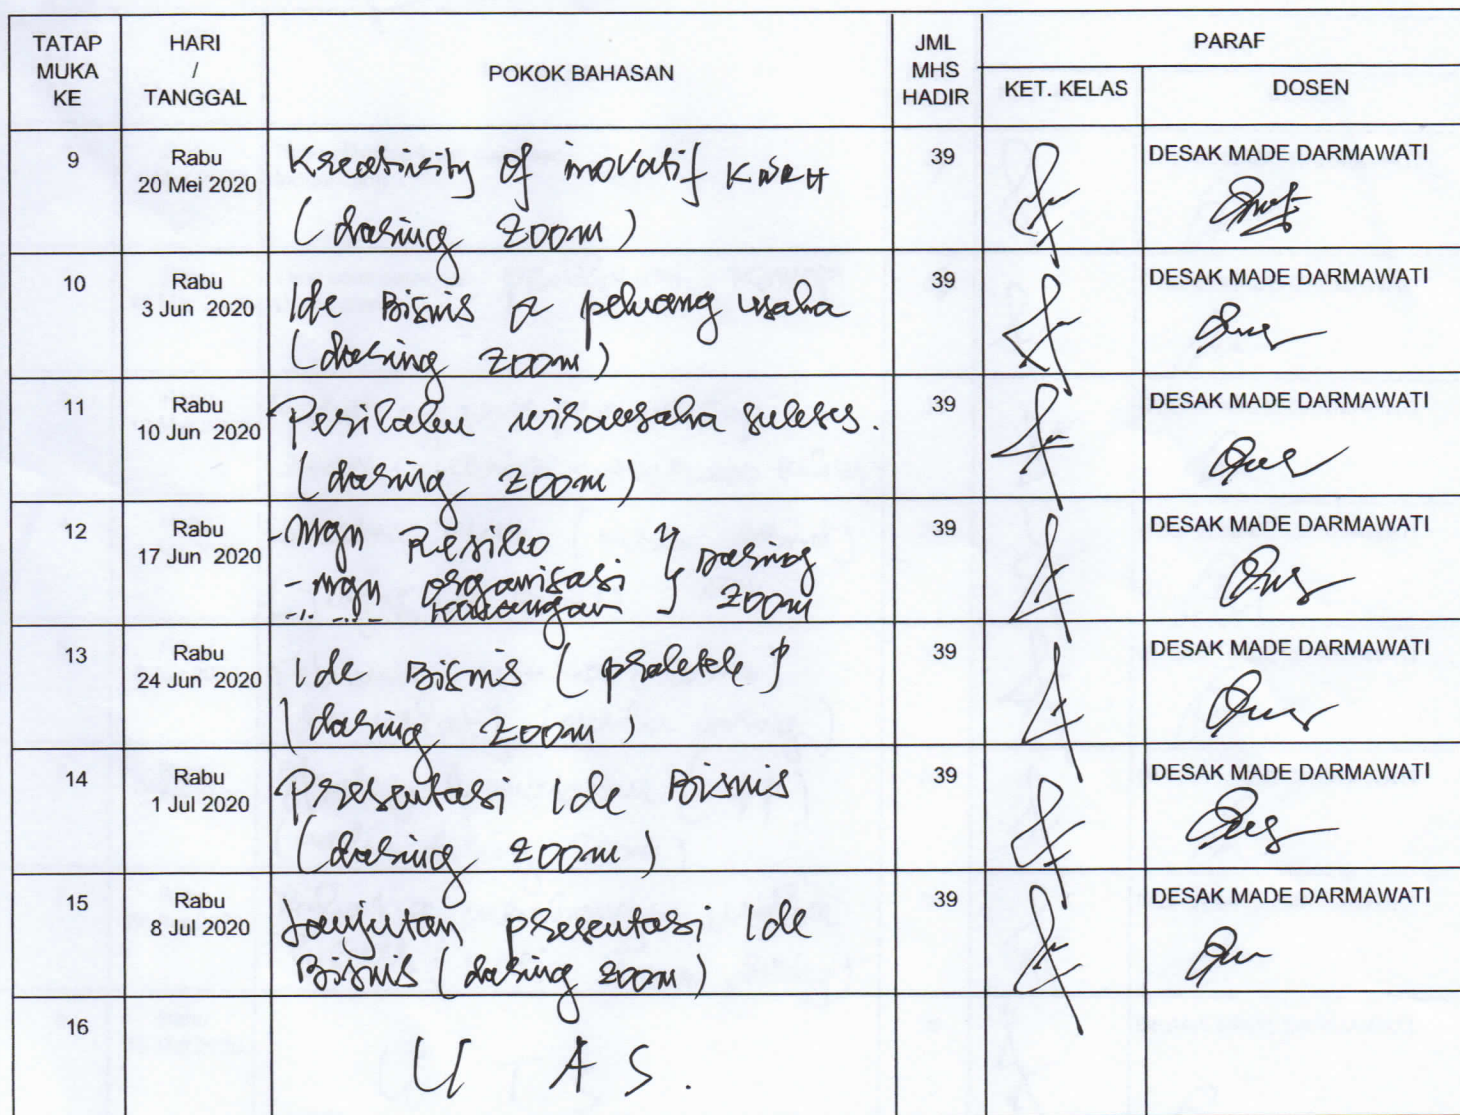 TATAP MUKA KE
HARI / TANGGAL
POKOK BAHASAN
JML MHS HADIR
PARAF
KET. KELAS
DOSEN
9
Rabu
20 Mei 2020
Kreativity of inovatif
(daring zoom)
39
DESAK MADE DARMAWATI
10
Rabu
3 Jun 2020
Ide Bisnis & peluang usaha
(daring zoom)
39
DESAK MADE DARMAWATI
11
Rabu
10 Jun 2020
Perilaku wirausaha sukses.
(daring zoom)
39
DESAK MADE DARMAWATI
12
Rabu
17 Jun 2020
- Mgn Resiko
- mgn organisasi
keuangan
} Daring
zoom
39
DESAK MADE DARMAWATI
13
Rabu
24 Jun 2020
Ide Bisnis (praktek)
(daring zoom)
39
DESAK MADE DARMAWATI
14
Rabu
1 Jul 2020
Presentasi Ide Bisnis
(daring zoom)
39
DESAK MADE DARMAWATI
15
Rabu
8 Jul 2020
Lanjutan presentasi Ide
Bisnis (daring zoom)
39
DESAK MADE DARMAWATI
16
U A S.